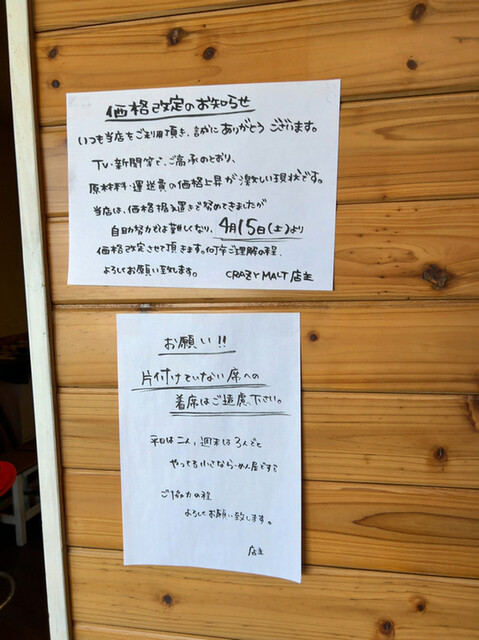 価格改定のお知らせ
いつも当店をご利用頂き、誠にありがとうございます。
TV・新聞等で、ご高承のとおり、
原材料・運送費の価格上昇が激しい現状です。
当店は、価格据え置きで努めてきましたが
自助努力では難しくなり、4月15日(土)より
価格改定させて頂きます。何卒ご理解の程、
よろしくお願い致します。 CRAZY MALT 店主
お願い!!
片付けていない席への
着席はご遠慮下さい。
平日は二人、週末は3人ごと
やってる小さならーめん屋です
ご協力の程
よろしくお願い致します。
店主